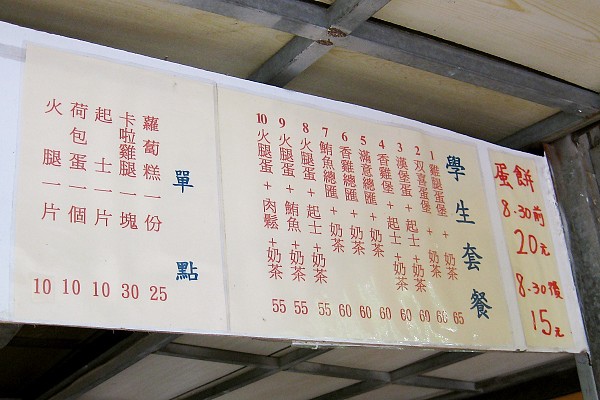 蛋餅
8.30前
20元
8.30後
15元
學生套餐
1 雞腿蛋堡 + 奶茶 65
2 双喜蛋堡 + 奶茶
3 漢堡蛋 + 起士 + 奶茶 60
4 香雞堡 + 奶茶 60
5 滿意總匯 + 奶茶 60
6 香雞總匯 + 奶茶 60
7 鮪魚總匯 + 奶茶 60
8 火腿蛋 + 起士 + 奶茶 55
9 火腿蛋 + 鮪魚 + 奶茶 55
10 火腿蛋 + 肉鬆 + 奶茶 55
單點
蘿蔔糕一份 25
卡啦雞腿一塊 30
起士一片 10
荷包蛋一個 10
火腿一片 10